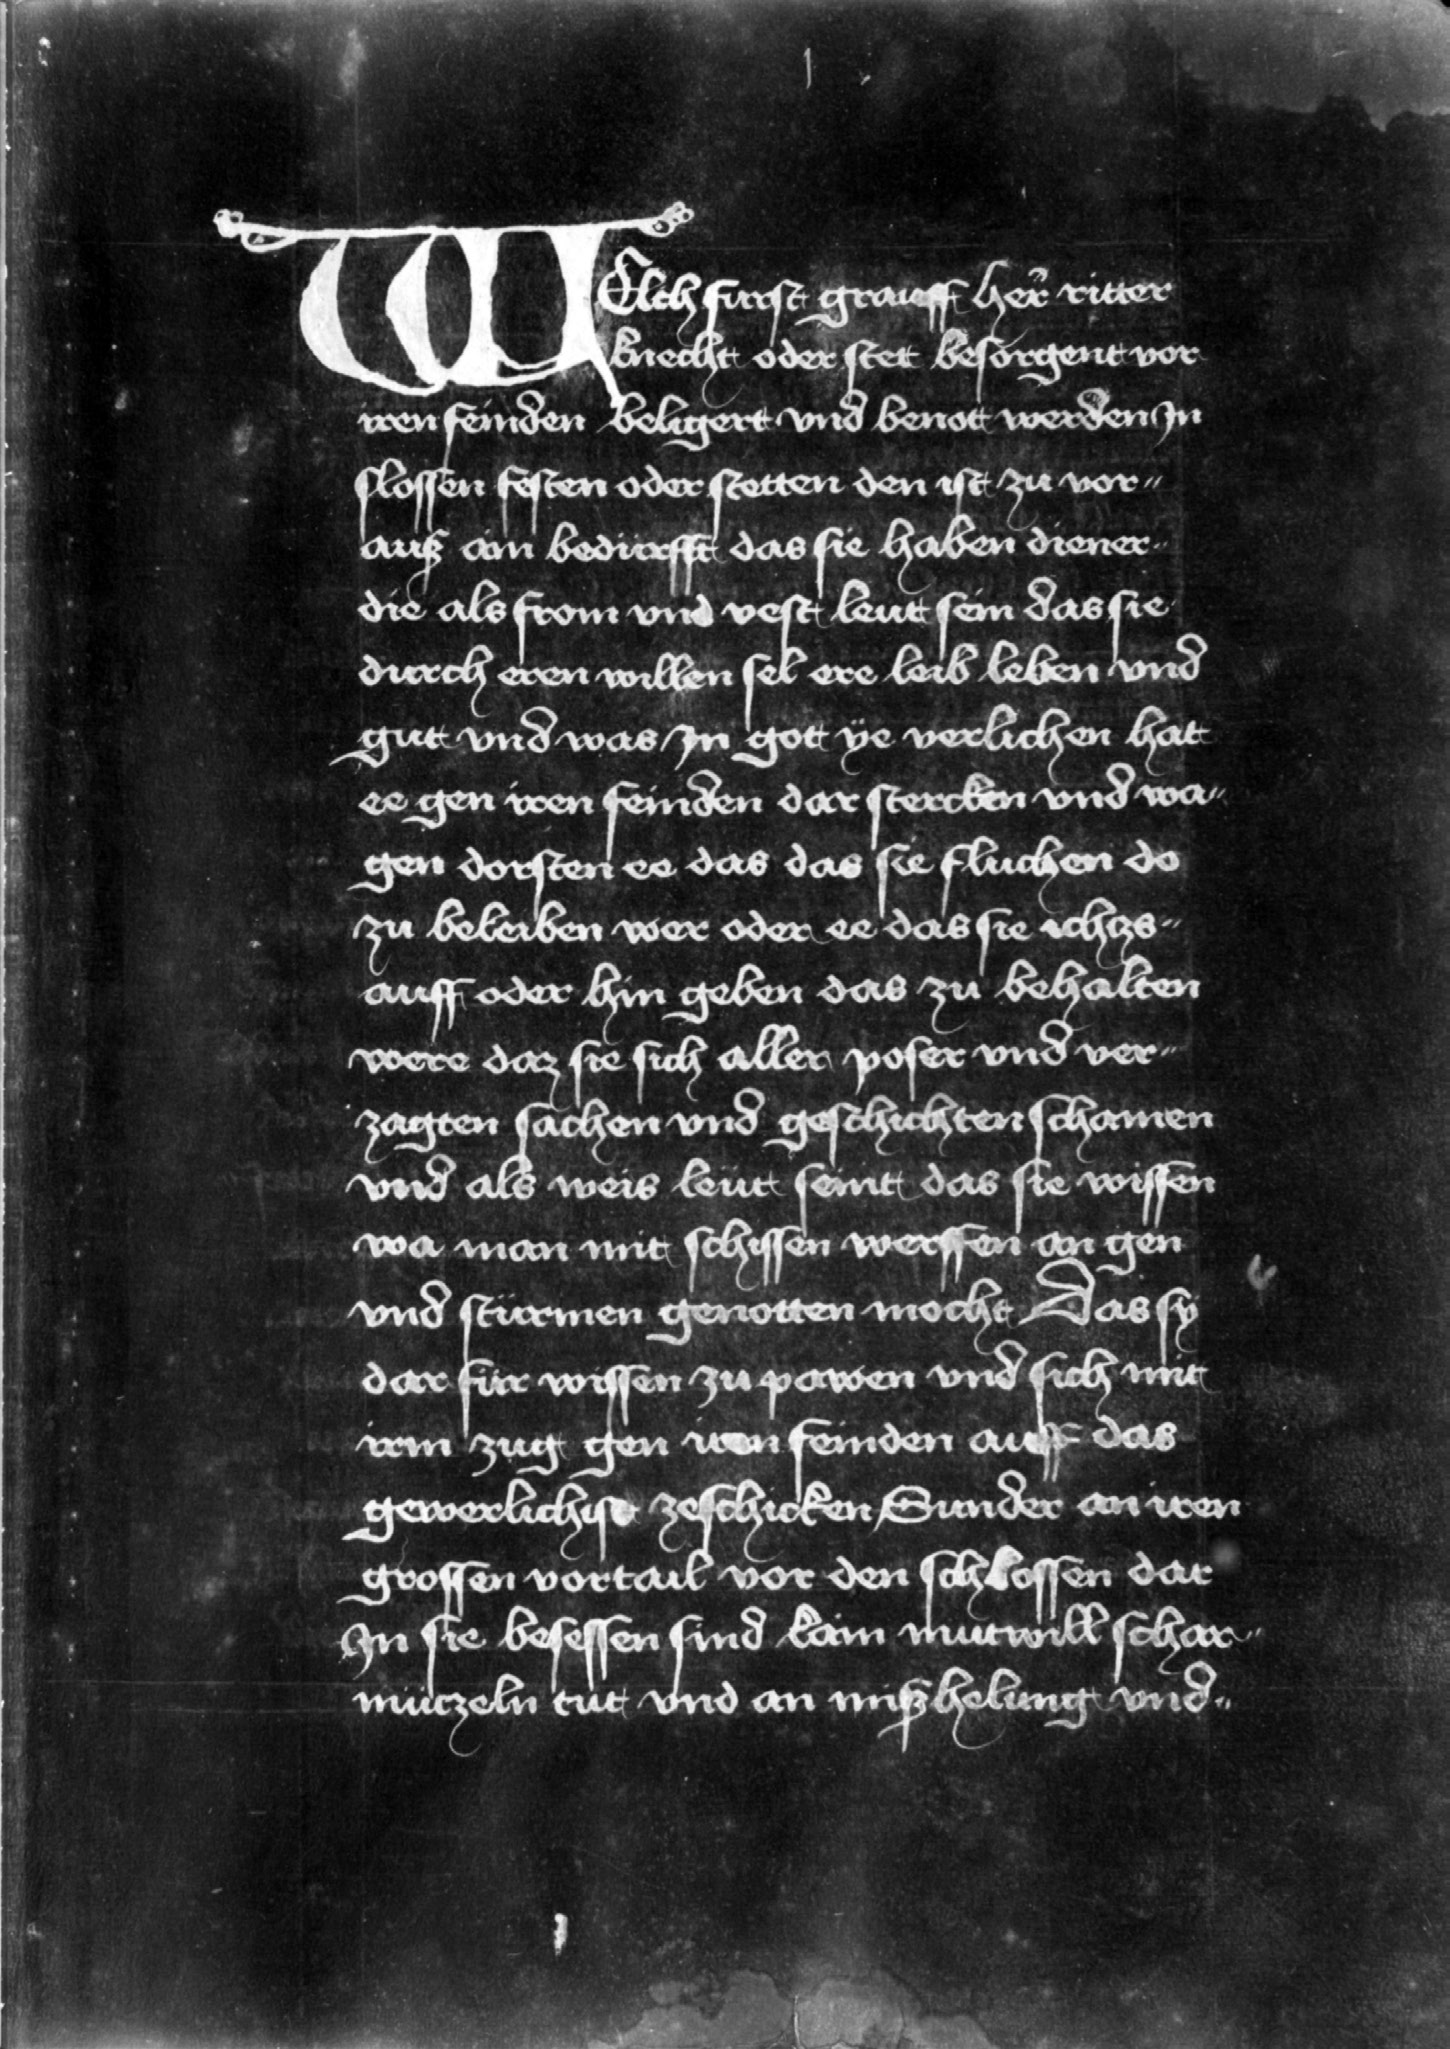 1
WElch furst grauff her̈ ritter
knecht oder stet besorgent vor
iren feinden beligert vnd benot werden Jn
slossen festen oder stetten den ist zu vor⸗
auß ain bedürfft das sie haben diener⸗
die als from vnd vest leut sein das sie
durch eren willen sel ere leib leben vnd
gut vnd was Jn got ÿe verlichen hat
ee gen iren feinden dar stercken vnd wa⸗
gen dorsten ee das das sie fluchen do
zu beleiben wer oder ee das sie ichczs⸗
auff oder hin geben das zu behalten
were daz sie sich aller poser vnd ver⸗
zagten sachen vnd geschichten schamen
vnd als weis leüt seint das sie wissen
wa man mit schissen werffen an gen
vnd stürmen genotten mocht Das sÿ
dar für wissen zu pawen vnd sich mit
irm zug gen iren feinden auff das
gewerlichist zeschicken Sunder an iren
grossen vortail vor den schlossen dar
Jn sie besessen sind kain mutwill schar⸗
müczeln tut vnd an mißhelung vnd⸗